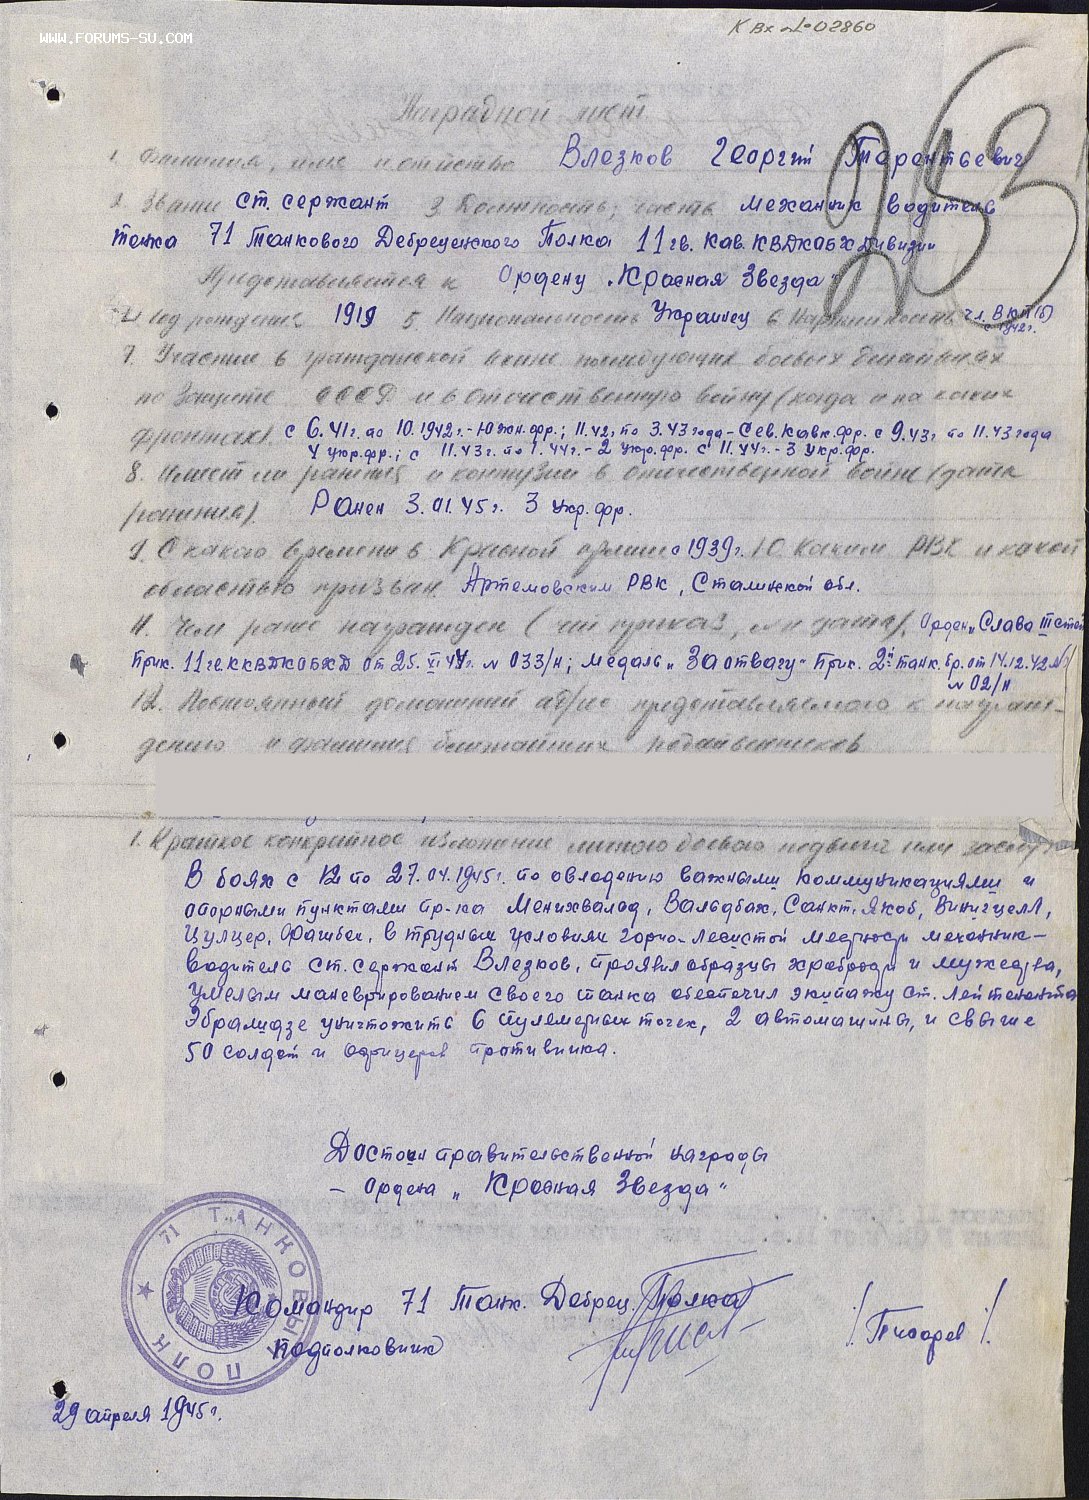 WWW.FORUMS-SU.COM
К Вх № 02860
253
Наградной лист
1. Фамилия, имя и отчество Влезков Георгий Терентьевич
2. Звание ст. сержант 3. Должность, часть механик водитель
танка 71 Танкового Дебреценского Полка 11 гв. кав. КВДКОБХ Дивизии
Представляется к Ордену „Красная Звезда"
4. Год рождения 1919 5. Национальность Украинец 6. Партийность чл. ВКП(б)
с 1942г.
7. Участие в гражданской войне последующих боевых действиях
по защите СССР и в отечественную войну (когда и на каких
фронтах). с 6.41г. по 10.1942г. - Южн. фр.; 11.42г. по 3.43 года - Сев. Кавк. фр. с 9.43г по 11.43 года
4 укр. фр.; с 11.43г. по 1.44г. - 2 укр. фр. с 11.44г. - 3 укр. фр.
8. Имеет ли ранения и контузии в отечественной войне (дата
ранения). Ранен 3.01.45г. 3 укр. фр.
9. С какого времени в Красной армии с 1939г. 10. Каким РВК и какой
областью призван Артемовским РВК, Сталинской обл.
11. Чем ранее награжден (чей приказ, № и дата). Орден „Слава III степ
Прик. 11 гв ККВДКОБХД от 25.XI 44г. № 033/н; медаль „За отвагу" Прик. 2й танк. бр. от 14.12.42
№ 02/н
12. Постоянный домашний адрес представляемого к награж-
дению и фамилия ближайших родственников
1. Краткое конкретное изложение личного боевого подвига или заслуг
В боях с 12 по 27.04.1945г. по овладению важными коммуникациями и
опорными пунктами пр-ка Менихвалад, Вальдбах, Санкт. Якоб, Винигцелл,
Цулцер, Фашбех, в трудных условиях горно-лесистой местности механик-
водитель ст. сержант Влезков, проявил образцы храбрости и мужества,
умелым маневрированием своего танка обеспечил экипажу ст. лейтенанта
Эбралидзе уничтожить 6 пулеметных точек, 2 автомашины, и свыше
50 солдат и офицеров противника.
Достоин правительственной награды
- Ордена „Красная Звезда"
71 ТАНКОВЫЙ ПОЛК
Командир 71 Танк. Дебрец. Полка
подполковник / Писарев /
29 апреля 1945г.